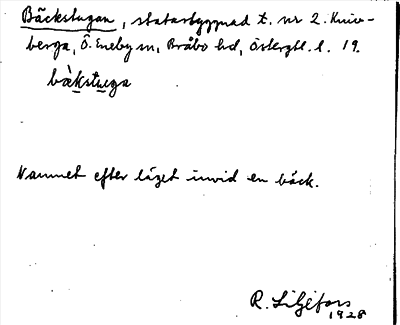 Bäckstugan, statarbyggnad t. nr 2. Kniv-
berga, Ö. Eneby sn, Bråbo hd, Östergtl. l. 19.
bækstuga
Namnet efter läget invid en bäck.
R. Liljefors
1928